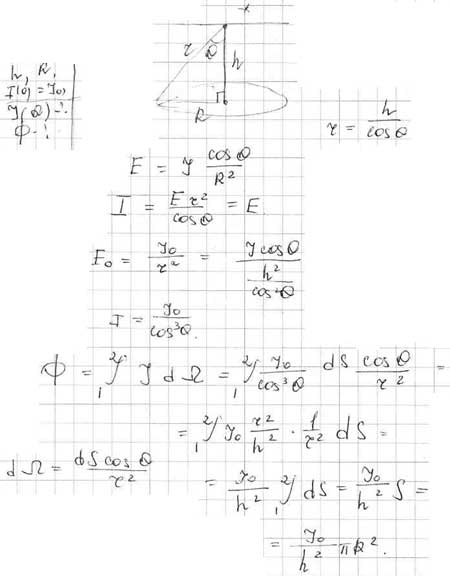 h, R,
I(0) = J₀,
J(Q) - ?
Φ - ?
r
Q
h
R
r = h / cosθ
E = J cosθ / R²
I = E r² / cosθ = E
E₀ = J₀ / r² = J cosθ / (h² / cos²θ)
I = J₀ / cos³θ.
Φ = ₁∫² J dΩ = ₁∫² J₀ / cos³θ dS cosθ / r² =
= ₁∫² J₀ r² / h² · 1 / r² dS =
dΩ = dS cosθ / r²
= J₀ / h² ₁∫² dS = J₀ / h² S =
= J₀ / h² πR².